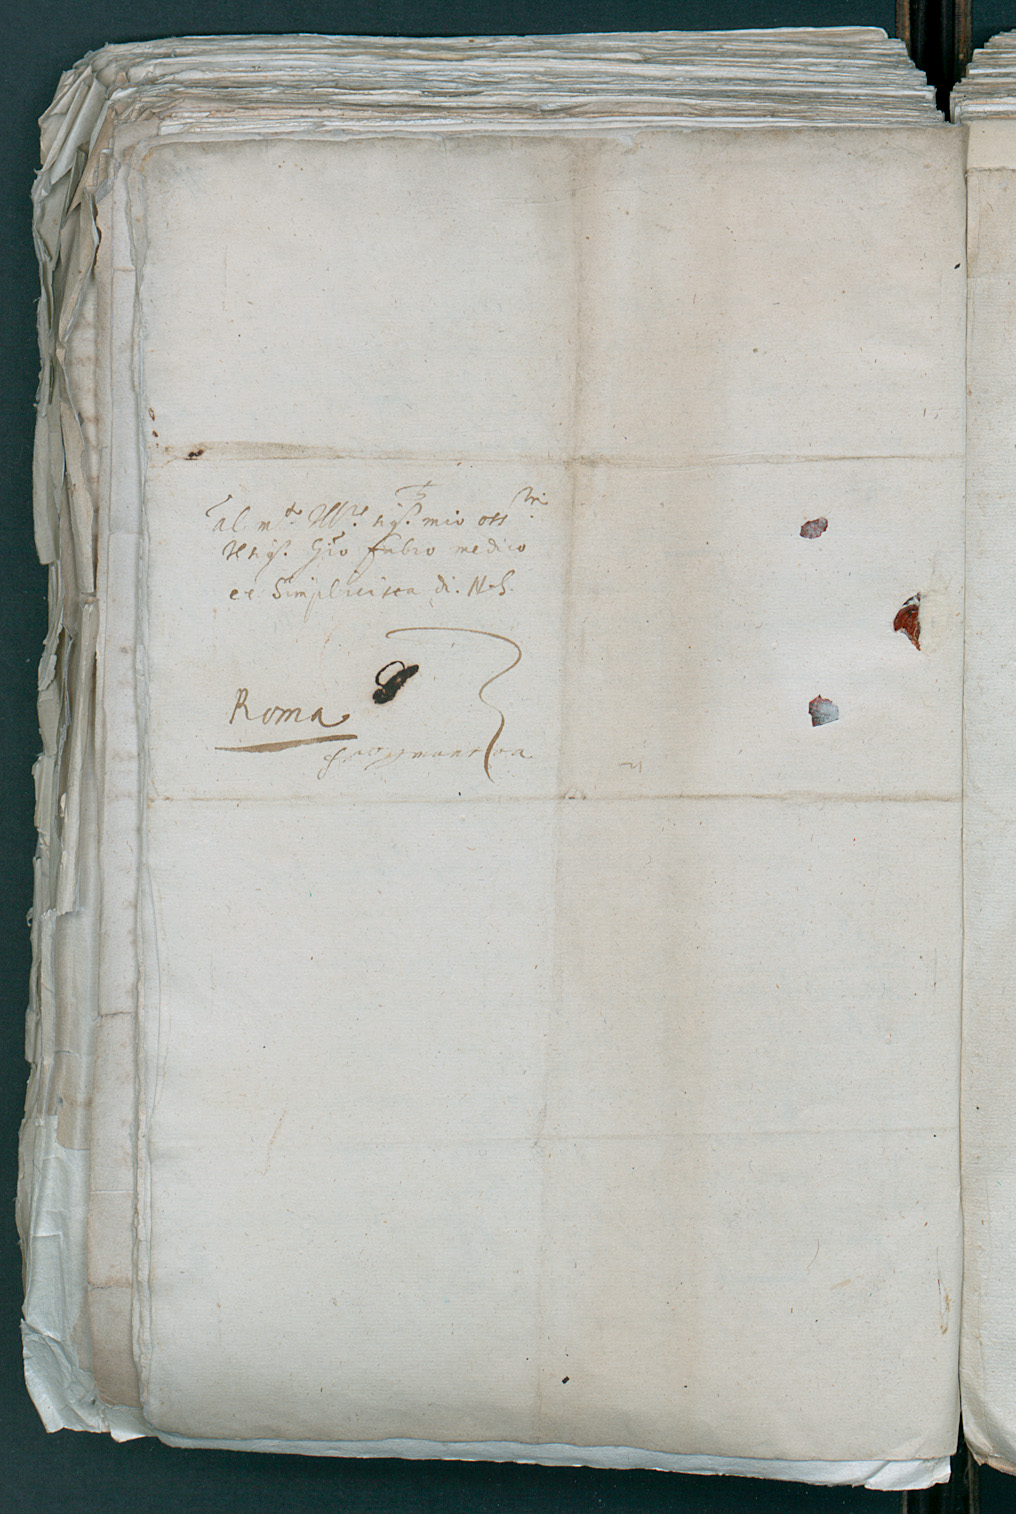 al m.to Ill.re sig.r mio oss.mo
Il sig.r Gio fabro medico
et Simplicista di. N. S.
Roma